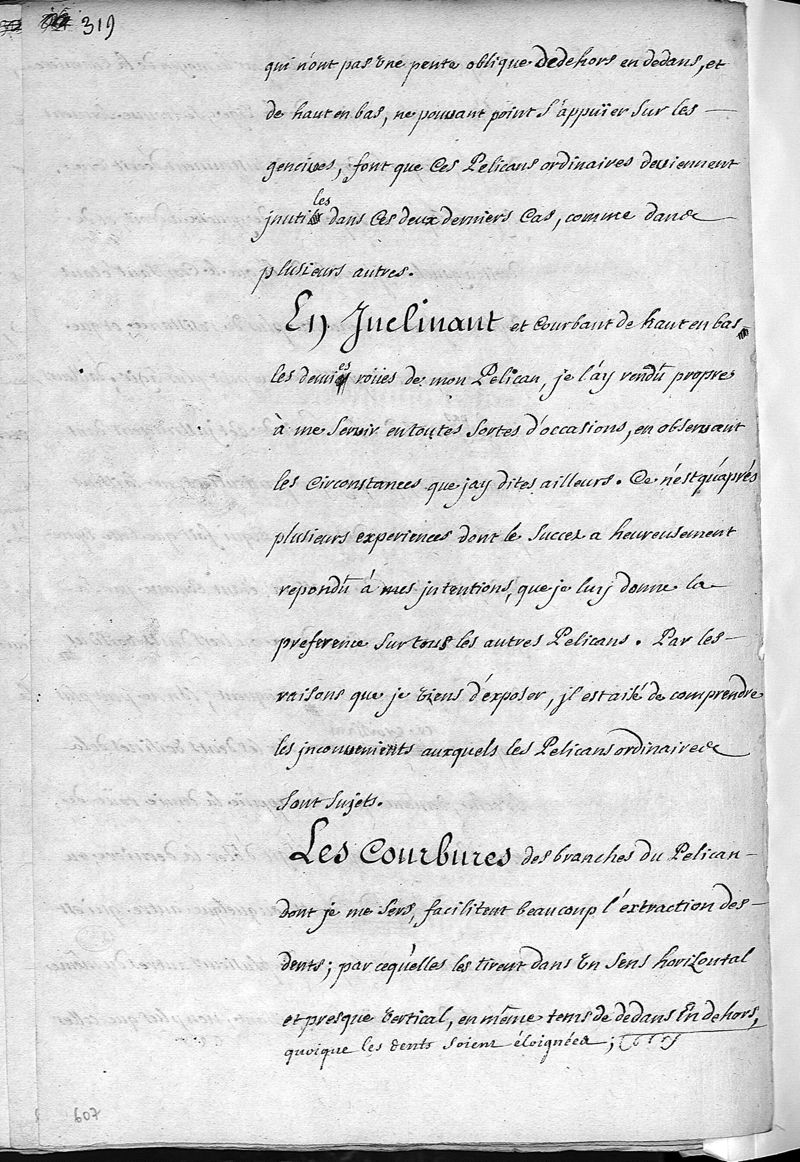 319
qui n'ont pas une pente oblique dedehors en dedans, et
de haut en bas, ne pouvant point s'appuïer sur les
gencives, font que ces Pelicans ordinaires deviennent
les
jnuti dans ces deux derniers cas, comme dans
plusieurs autres.
En Jnclinant et courbant de haut en bas
les demies roües de mon Pelican, je l'ay rendû propre
à me servir en toutes sortes d'occasions, en observant
les circonstances que jay dites ailleurs. Ce n'est qu'aprés
plusieurs experiences dont le succez a heureusement
repondû à mes jntentions, que je luy donne la
preference sur tous les autres Pelicans. Par les
raisons que je viens d'exposer, jl est aisé de comprendre
les jnconvenients auxquels les Pelicans ordinaires
sont sujets.
Les Courbures des branches du Pelican
dont je me sers, facilitent beaucoup l'extraction des
dents; par cequ'elles les tirent dans un sens horizontal
et presque vertical, en même tems de dedans En dehors,
quoique les dents soient éloignées;
607